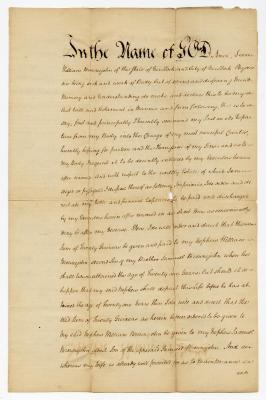 In the Name of GOD Amen I
William Branagdon of the State of
being sick and weak of Body but of sound and disposing Mind
Memory and Understanding do make and declare this to be my
last Will and Testament in Manner and form following that is to
say, first and principally I humbly commend my Soul on its depar-
ture from my Body unto the Charge of my most merciful Creator,
humbly hoping for pardon and the Remission of my Sins and as to
my Body I request it to be decently interred by my Executors herein
after named And with respect to the worldly Estate of which I am
I dispose thereof as following Imprimis I do order and di-
rect all my Debts and funeral Expences to be paid and discharged
by my Executors herein after named as soon as conveniently
may be after my decease Item I do order and direct that the
Sum of Twenty Guineas be given and paid to my Nephew William
second Son of my Brother Samuel when he
shall have attained the Age of Twenty one Years but should it so
happen that my said Nephew shall depart this Life before he has at-
tained the Age of twenty one Years then I do will and direct that the
said Sum of Twenty Guineas as herein before ordered to be given to
my said Nephew William be given to my Nephew Samuel
Son of the aforesaid Samuel And
whereas my Wife is already well provided for as to